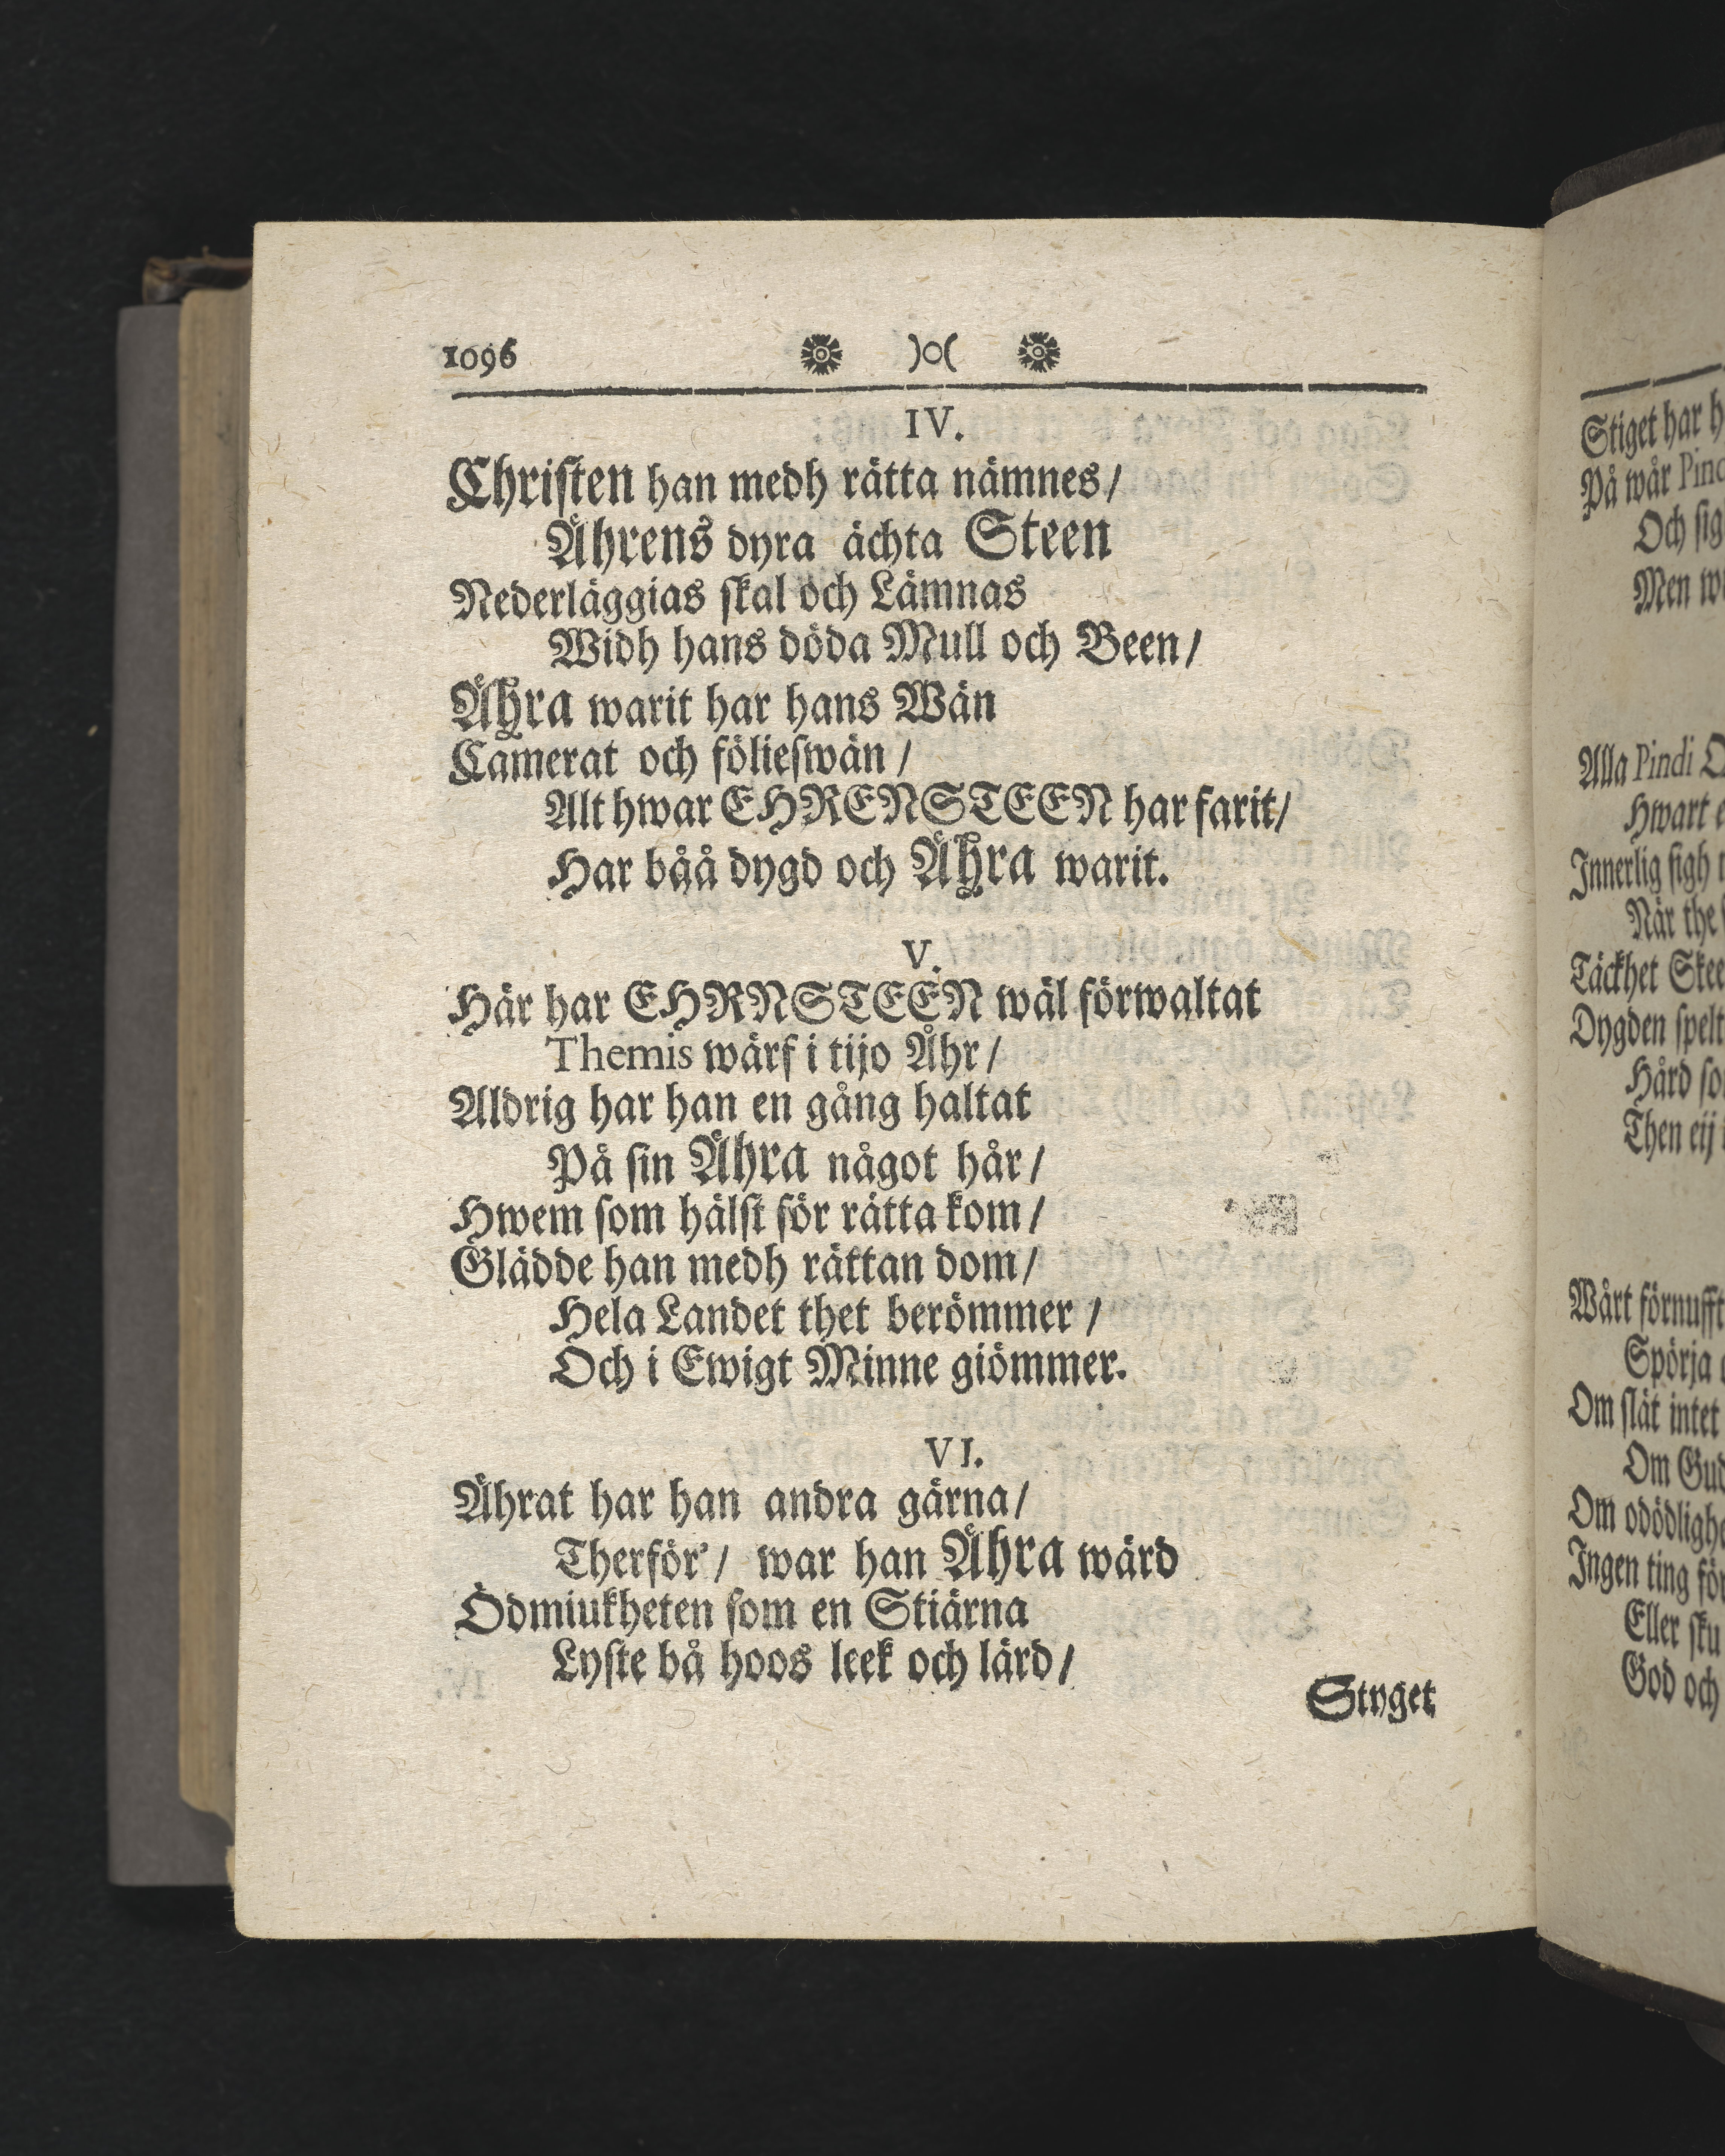 1096 )o(
IV.
Christen han medh rätta nämnes/
Ährens dyra ächta Steen
Nederläggias skal och Lämnas
Widh hans döda Mull och Been/
Ähra warit har hans Wän
Camerat och fölieswän /
Alt hwar EHRENSTEEN har farit/
Har båå dygd och Ähra warit.
V.
Här har EHRNSTEEN wäl förwaltat
Themis wärf i tijo Åhr /
Aldrig har han en gång haltat
På sin Ähra något hår /
Hwem som hälst för rätta kom /
Glädde han medh rättan dom/
Hela Landet thet berömmer /
Och i Ewigt Minne giömmer.
VI.
Ährat har han andra gärna/
Therför' / war han Ähra wärd
Ödmiukheten som en Stiärna
Lyste bå hoos leek och lärd /
Styget
Stiget har
På wår
Och
Men
Alla Pindi
Hwart
Innerlig sigh
När the
Täckhet
Dygden
Hård
Then eij
Wårt
Spörja
Om slät intet
Om
Om
Ingen ting
Eller
God och